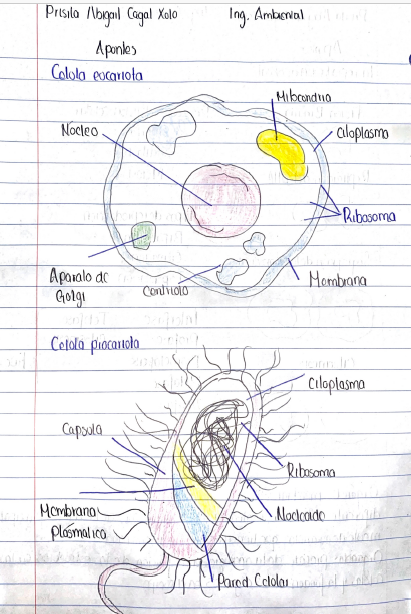 Prisila Abigail Cagal Xolo Ing. Ambienial
Apontes
Celula eucariota
Mitocondria
Nucleo
Citoplasma
Ribosoma
Aparato de
Golgi
Centriolo
Membrana
Celula procariota
Citoplasma
Capsula
Ribosoma
Membrana
Plásmatica
Nucleoide
Pared Celular